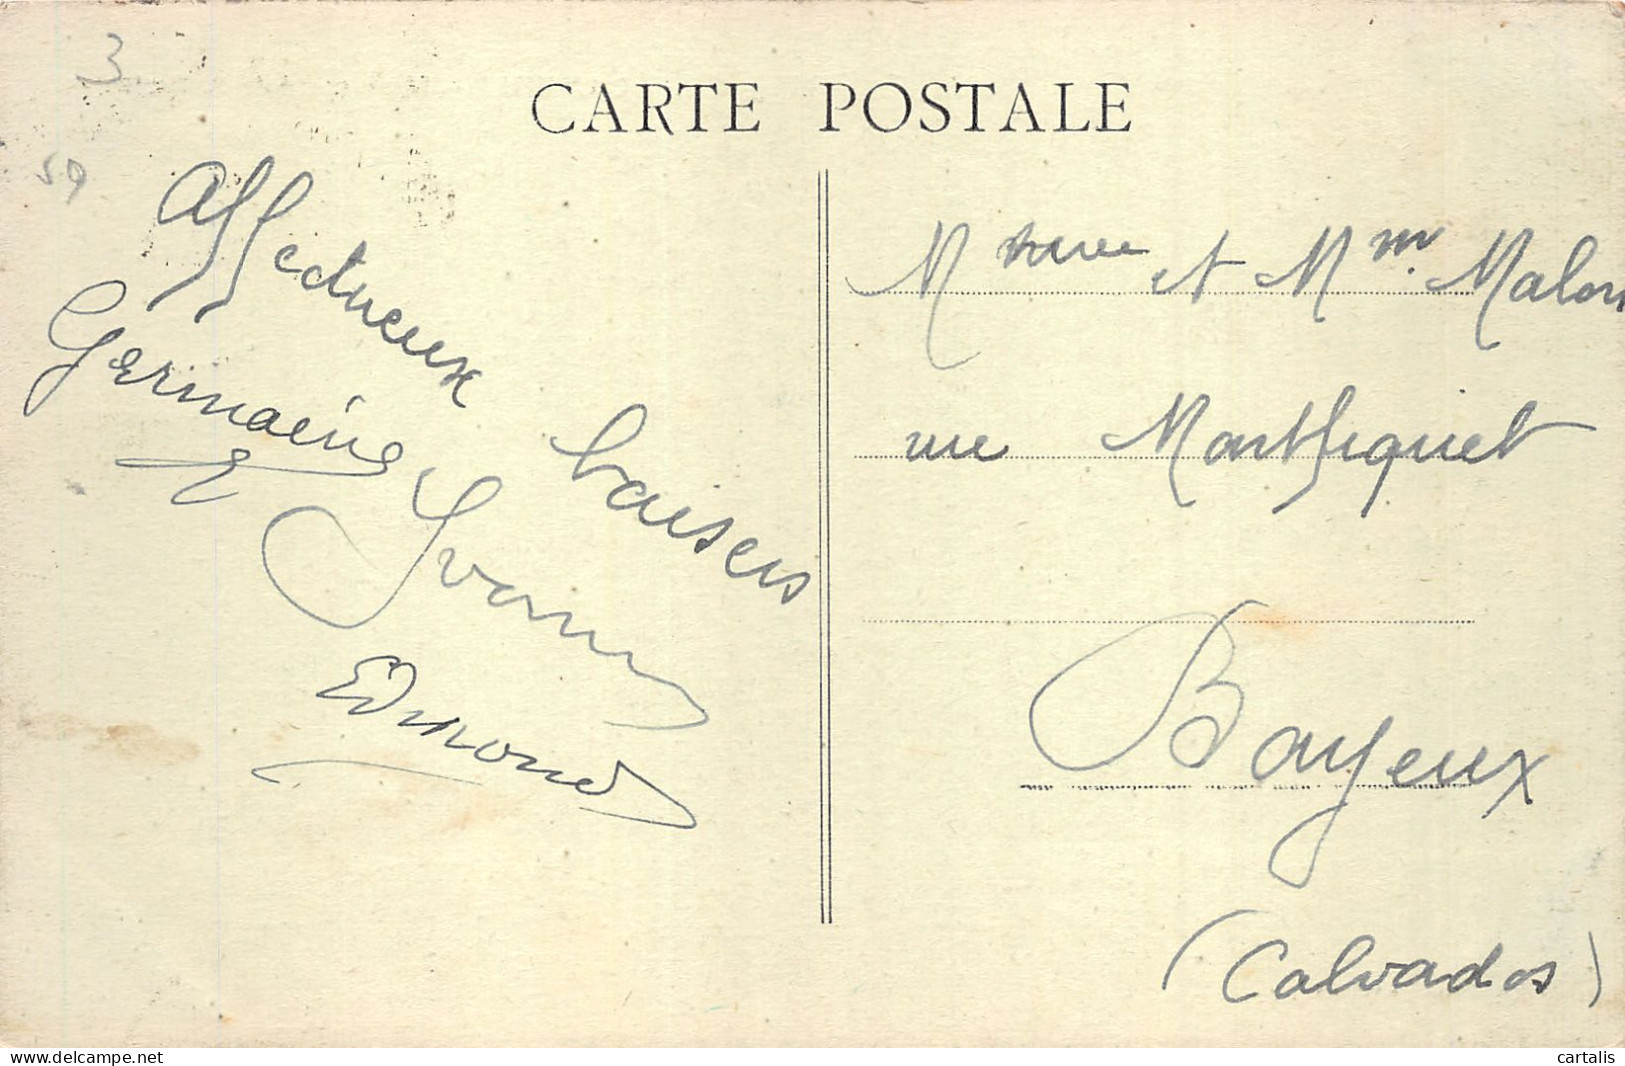 3
CARTE POSTALE
59
Affectueux baisers
Germaine
Yvonne
Edmond
et Mm. Malon
rue Montfiquet
Bayeux
(Calvados)
delcampe.net
cartalis